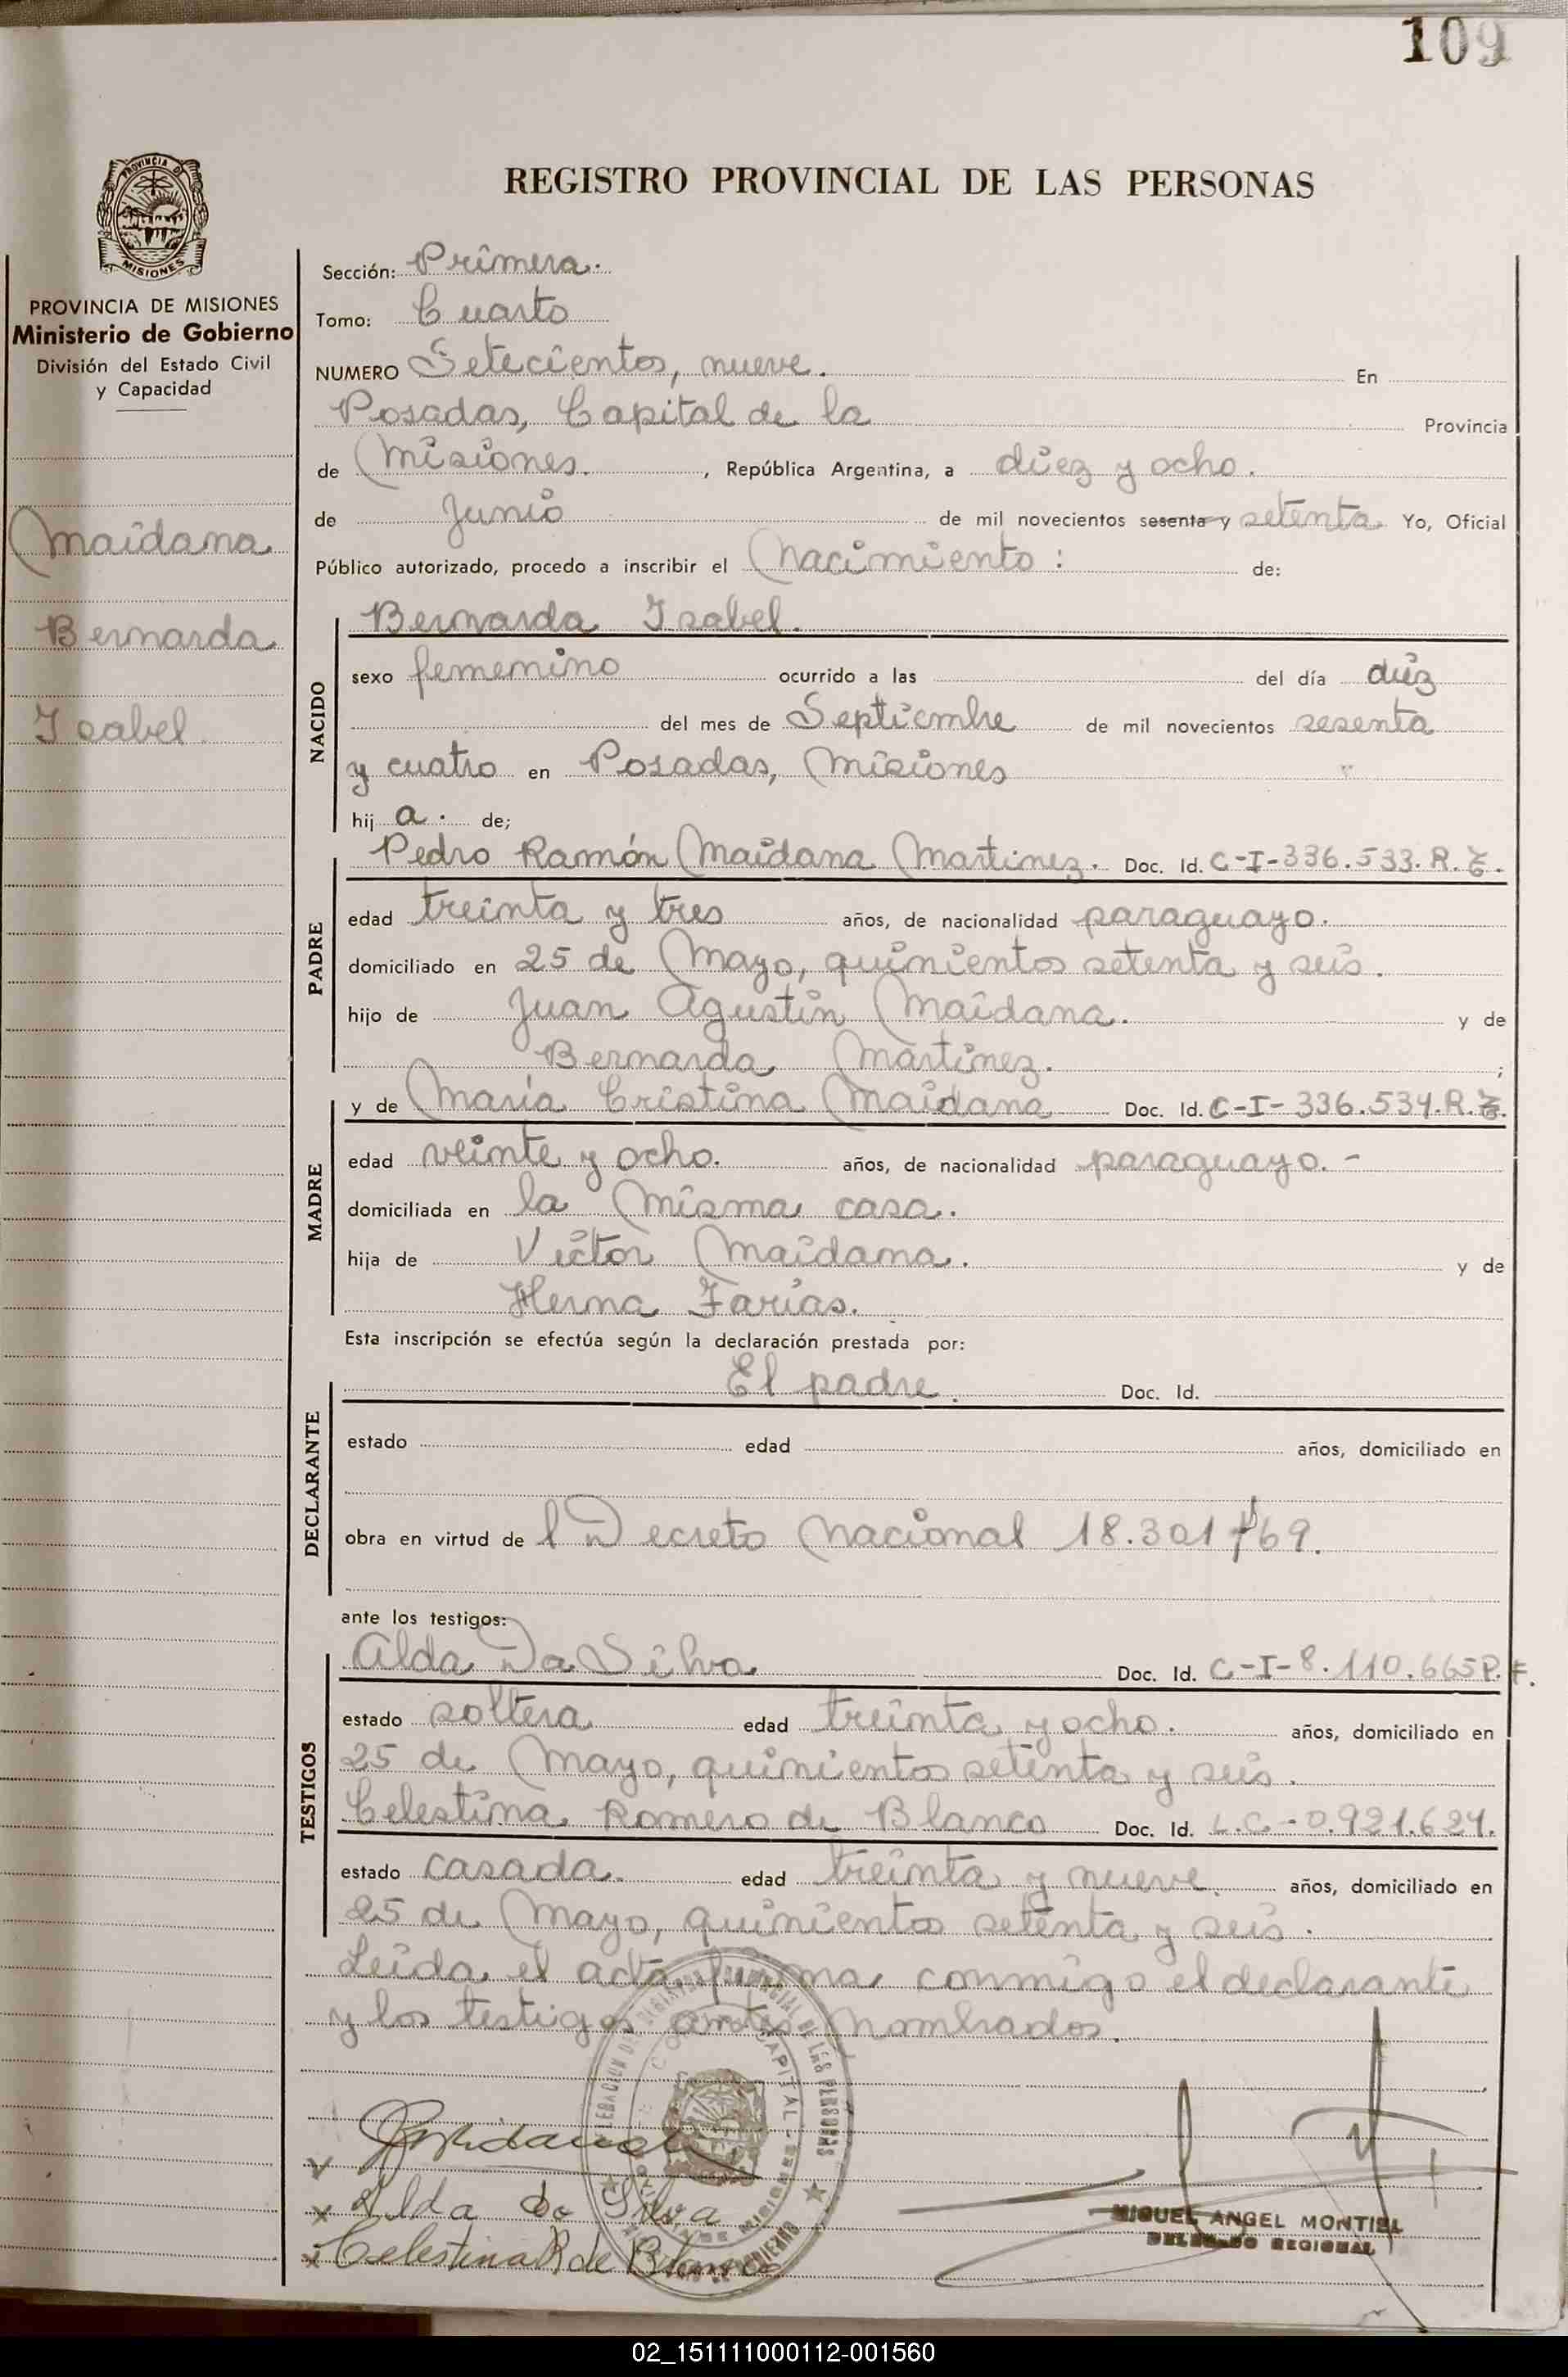 109
PROVINCIA DE
MISIONES
REGISTRO PROVINCIAL DE LAS PERSONAS
PROVINCIA DE MISIONES
Ministerio de Gobierno
División del Estado Civil
y Capacidad
Maidana
Bernarda
Isabel
Sección: Primera.
Tomo: Cuarto
NUMERO Setecientos, nueve. En
Posadas, Capital de la Provincia
de Misiones. , República Argentina, a diez y ocho.
de Junio de mil novecientos sesenta y setenta Yo, Oficial
Público autorizado, procedo a inscribir el Nacimiento : de:
NACIDO
Bernarda Isabel.
sexo femenino ocurrido a las del día diez
del mes de Septiembre de mil novecientos sesenta
y cuatro en Posadas, Misiones
hij a. de;
PADRE
Pedro Ramón Maidana Martinez. Doc. Id. C-I-336.533.R.
edad treinta y tres años, de nacionalidad paraguayo.
domiciliado en 25 de Mayo, quinientos setenta y seis.
hijo de Juan Agustín Maidana. y de
Bernarda Martinez. ;
MADRE
y de María Cristina Maidana Doc. Id. C-I-336.534.R.
edad veinte y ocho. años, de nacionalidad paraguayo. -
domiciliada en la Misma casa.
hija de Victor Maidana. y de
Herma Farias.
Esta inscripción se efectúa según la declaración prestada por:
DECLARANTE
El padre. Doc. Id.
estado edad años, domiciliado en
obra en virtud de l Decreto Nacional 18.301/69.
ante los testigos:
TESTIGOS
Alda Da Silva Doc. Id. C-I-8.110.665P.F.
estado soltera edad treinta y ocho. años, domiciliado en
25 de Mayo, quinientos setenta y seis.
Celestina Romero de Blanco Doc. Id. L.C-0.921.624.
estado casada. edad treinta y nueve. años, domiciliado en
25 de Mayo, quinientos setenta y seis.
Leida el acta, firma conmigo el declarante
y los testigos antes Nombrados.
Alda da Silva
Celestina R de Blanco
MIGUEL ANGEL MONTIEL
DELEGADO REGIONAL
02_151111000112-001560